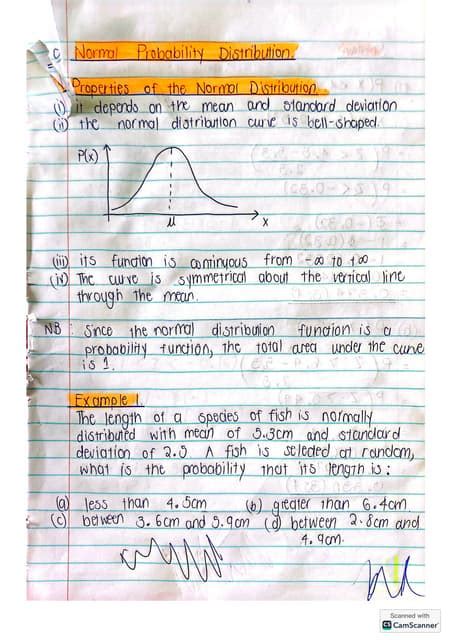 C Normal Probability Distribution.
Properties of the Normal Distribution.
(i) it depends on the mean and standard deviation
(ii) the normal distribution curve is bell-shaped.
P(x)
μ
x
(iii) its function is continuous from -∞ to +∞
(iv) The curve is symmetrical about the vertical line
through the mean.
NB : Since the normal distribution function is a
probability function, the total area under the curve
is 1.
Example 1.
The length of a species of fish is normally
distributed with mean of 5.3cm and standard
deviation of 2.5 A fish is selected at random,
what is the probability that its length is:
(a) less than 4.5cm (b) greater than 6.4cm
(c) between 3.6cm and 5.9cm (d) between 2.8cm and
4.9cm.
Scanned with
CS CamScanner